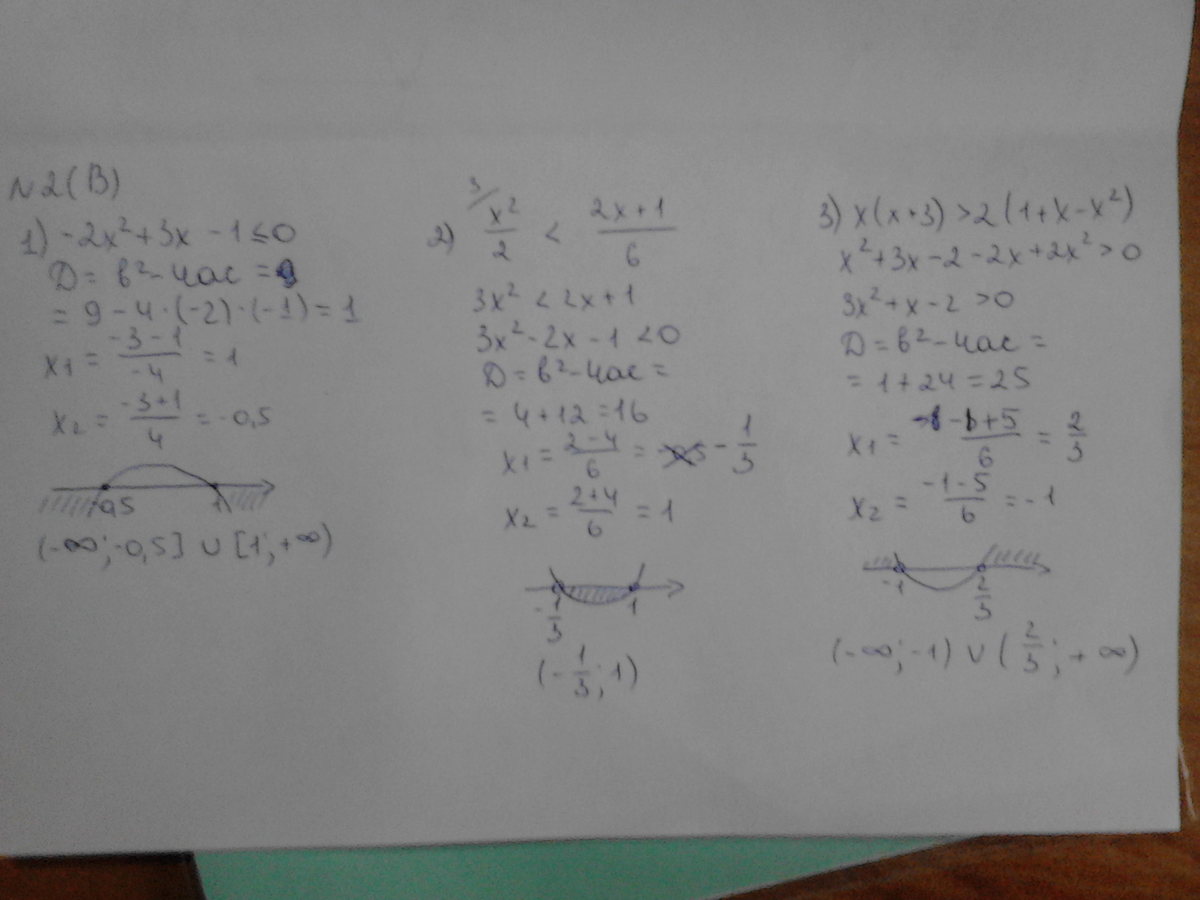 N2(В)
1) -2x²+3x-1≤0
Д = в²-4ас =9
= 9-4·(-2)·(-1)=1
x1 = -3-1/-4 = 1
x2 = -3+1/4 = -0,5
-0,5 1
(-∞;-0,5] ∪ [1;+∞)
2) 3/ x²/2 < 2x+1/6
3x² < 2x+1
3x²-2x-1<0
Д = в²-4ас =
= 4+12=16
x1 = 2-4/6 = -1/3
x2 = 2+4/6 = 1
-1/3 1
(-1/3;1)
3) x(x+3)>2(1+x-x²)
x²+3x-2-2x+2x²>0
3x²+x-2>0
Д = в²-4ас =
= 1+24=25
x1 = -1+5/6 = 2/3
x2 = -1-5/6 = -1
-1 2/3
(-∞;-1) ∪ (2/3;+∞)